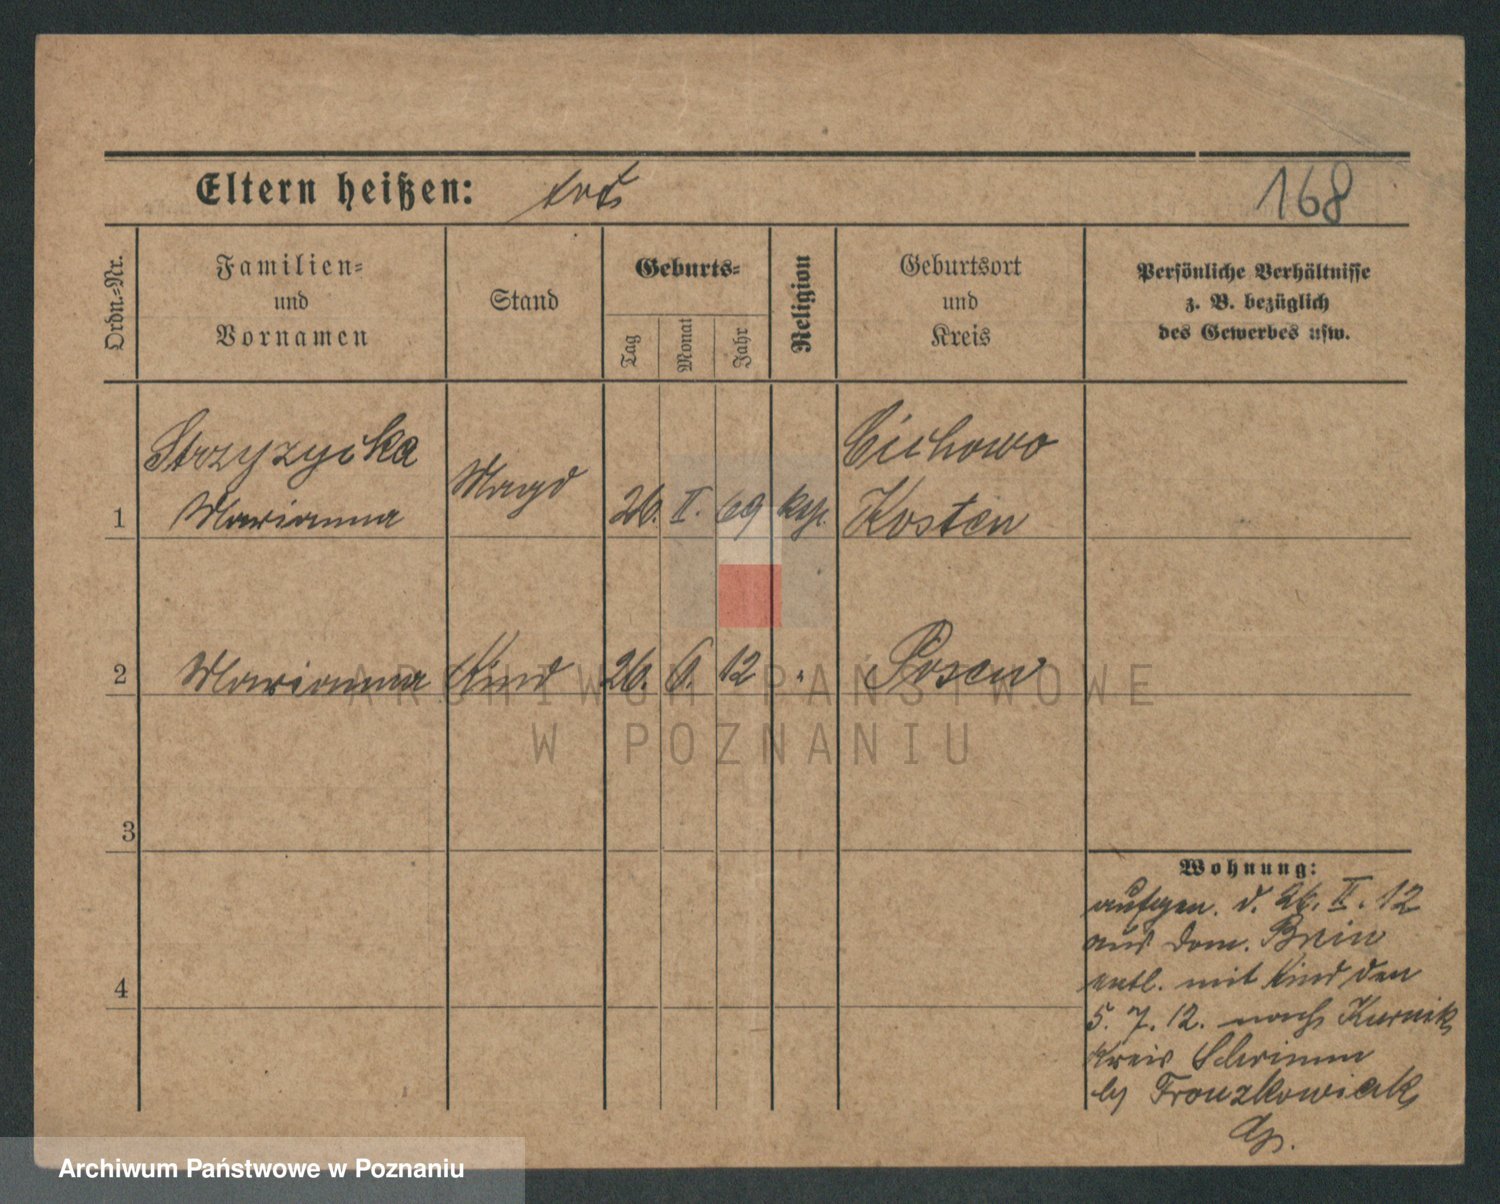 Eltern heißen: tot
168
Ordn.-Nr.
Familien-
und
Vornamen
Stand
Geburts-
Tag
Monat
Jahr
Religion
Geburtsort
und
Kreis
Persönliche Verhältnisse
z. B. bezüglich
des Gewerbes usw.
Strzyzycka Cichowo
1 Marianna Magd 26. II. 69 Kosten
2 Marianna Kind 26. 6. 12 " Posen
3
4
Wohnung:
aufgen. d. 26. II. 12
aus Dom. Bnin
entl. mit Kind den
5. 7. 12. nach Kurnik
Kreis Schrimm
ARCHIWUM PAŃSTWOWE
W POZNANIU
Archiwum Państwowe w Poznaniu